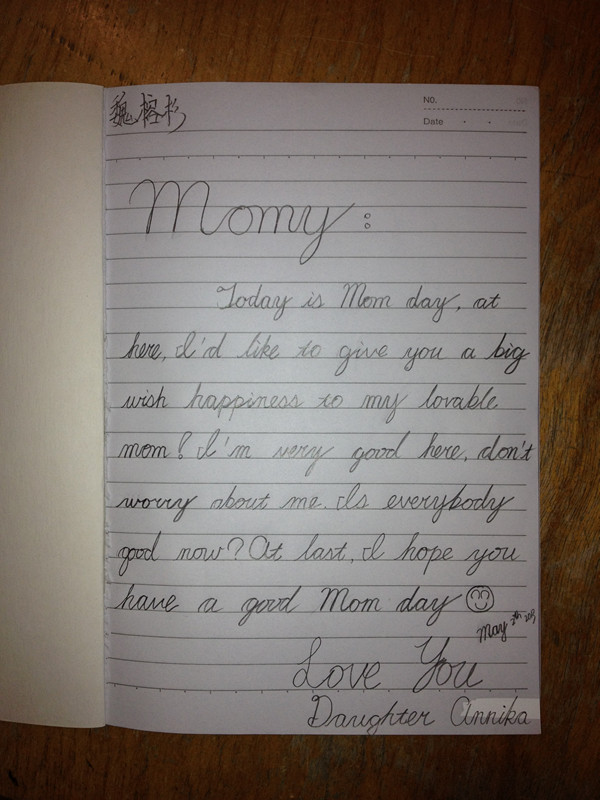 魏榕杉
No.
Date
Momy:
Today is Mom day, at
here, I'd like to give you a big
wish happiness to my lovable
mom! I'm very good here, don't
worry about me. Is everybody
good now? At last, I hope you
have a good Mom day
May
Love You
Daughter Annika